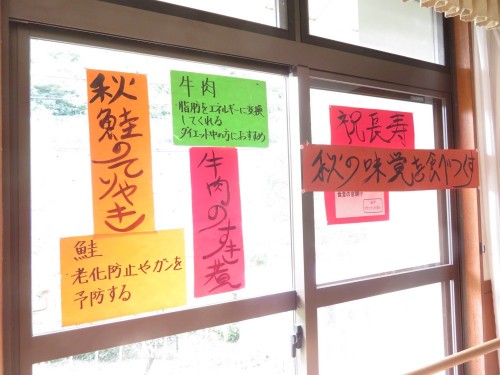 秋鮭のてりやき
牛肉
脂肪をエネルギーに変換
してくれる
ダイエット中の方におすすめ
牛肉のすき煮
鮭
老化防止やガンを
予防する
祝長寿
秋の味覚を食べつくす